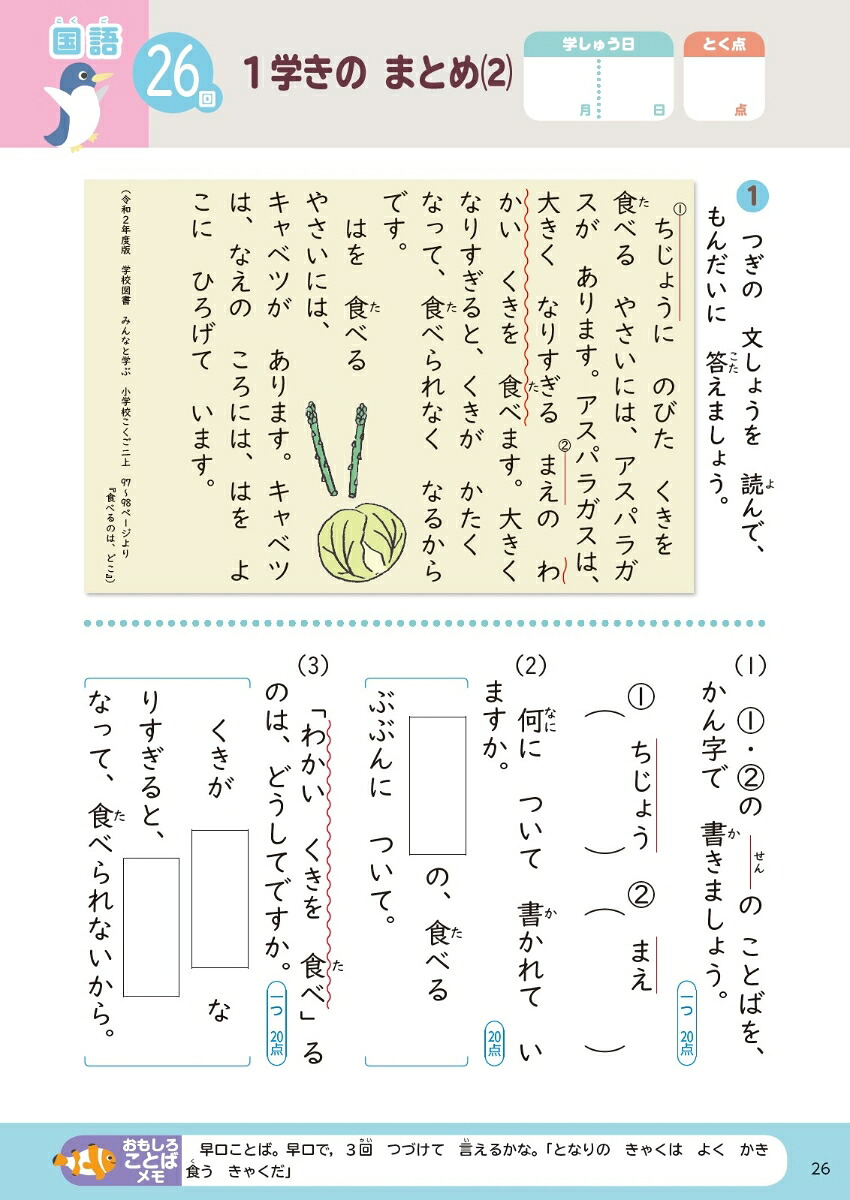 国語
こくご
26回
1学きの まとめ⑵
学しゅう日
月 日
とく点
点
1
つぎの 文しょうを 読んで、
よ
もんだいに 答えましょう。
こた
①ちじょうに のびた くきを
食べる やさいには、アスパラガ
た
スが あります。アスパラガスは、
大きく なりすぎる ②まえの わ
かい くきを 食べます。大きく
た
なりすぎると、くきが かたく
なって、食べられなく なるから
た
です。
はを 食べる
た
やさいには、
キャベツが あります。キャベツ
は、なえの ころには、はを よ
こに ひろげて います。
(令和2年度版 学校図書 みんなと学ぶ 小学校こくご二上 97~98ページより
『食べるのは、どこ』)
(1) ①・②の ―の ことばを、
せん
かん字で 書きましょう。
か
一つ 20点
① ちじょう ② まえ
( ) ( )
(2) 何に ついて 書かれて い
なに か
ますか。
20点
の、食べる
た
ぶぶんに ついて。
(3) 「わかい くきを 食べ」る
た
のは、どうしてですか。
一つ 20点
くきが な
りすぎると、
なって、食べられないから。
た
おもしろ
ことば
メモ
早口ことば。早口で，3回 つづけて 言えるかな。「となりの きゃくは よく かき
かい い
食う きゃくだ」
く
26